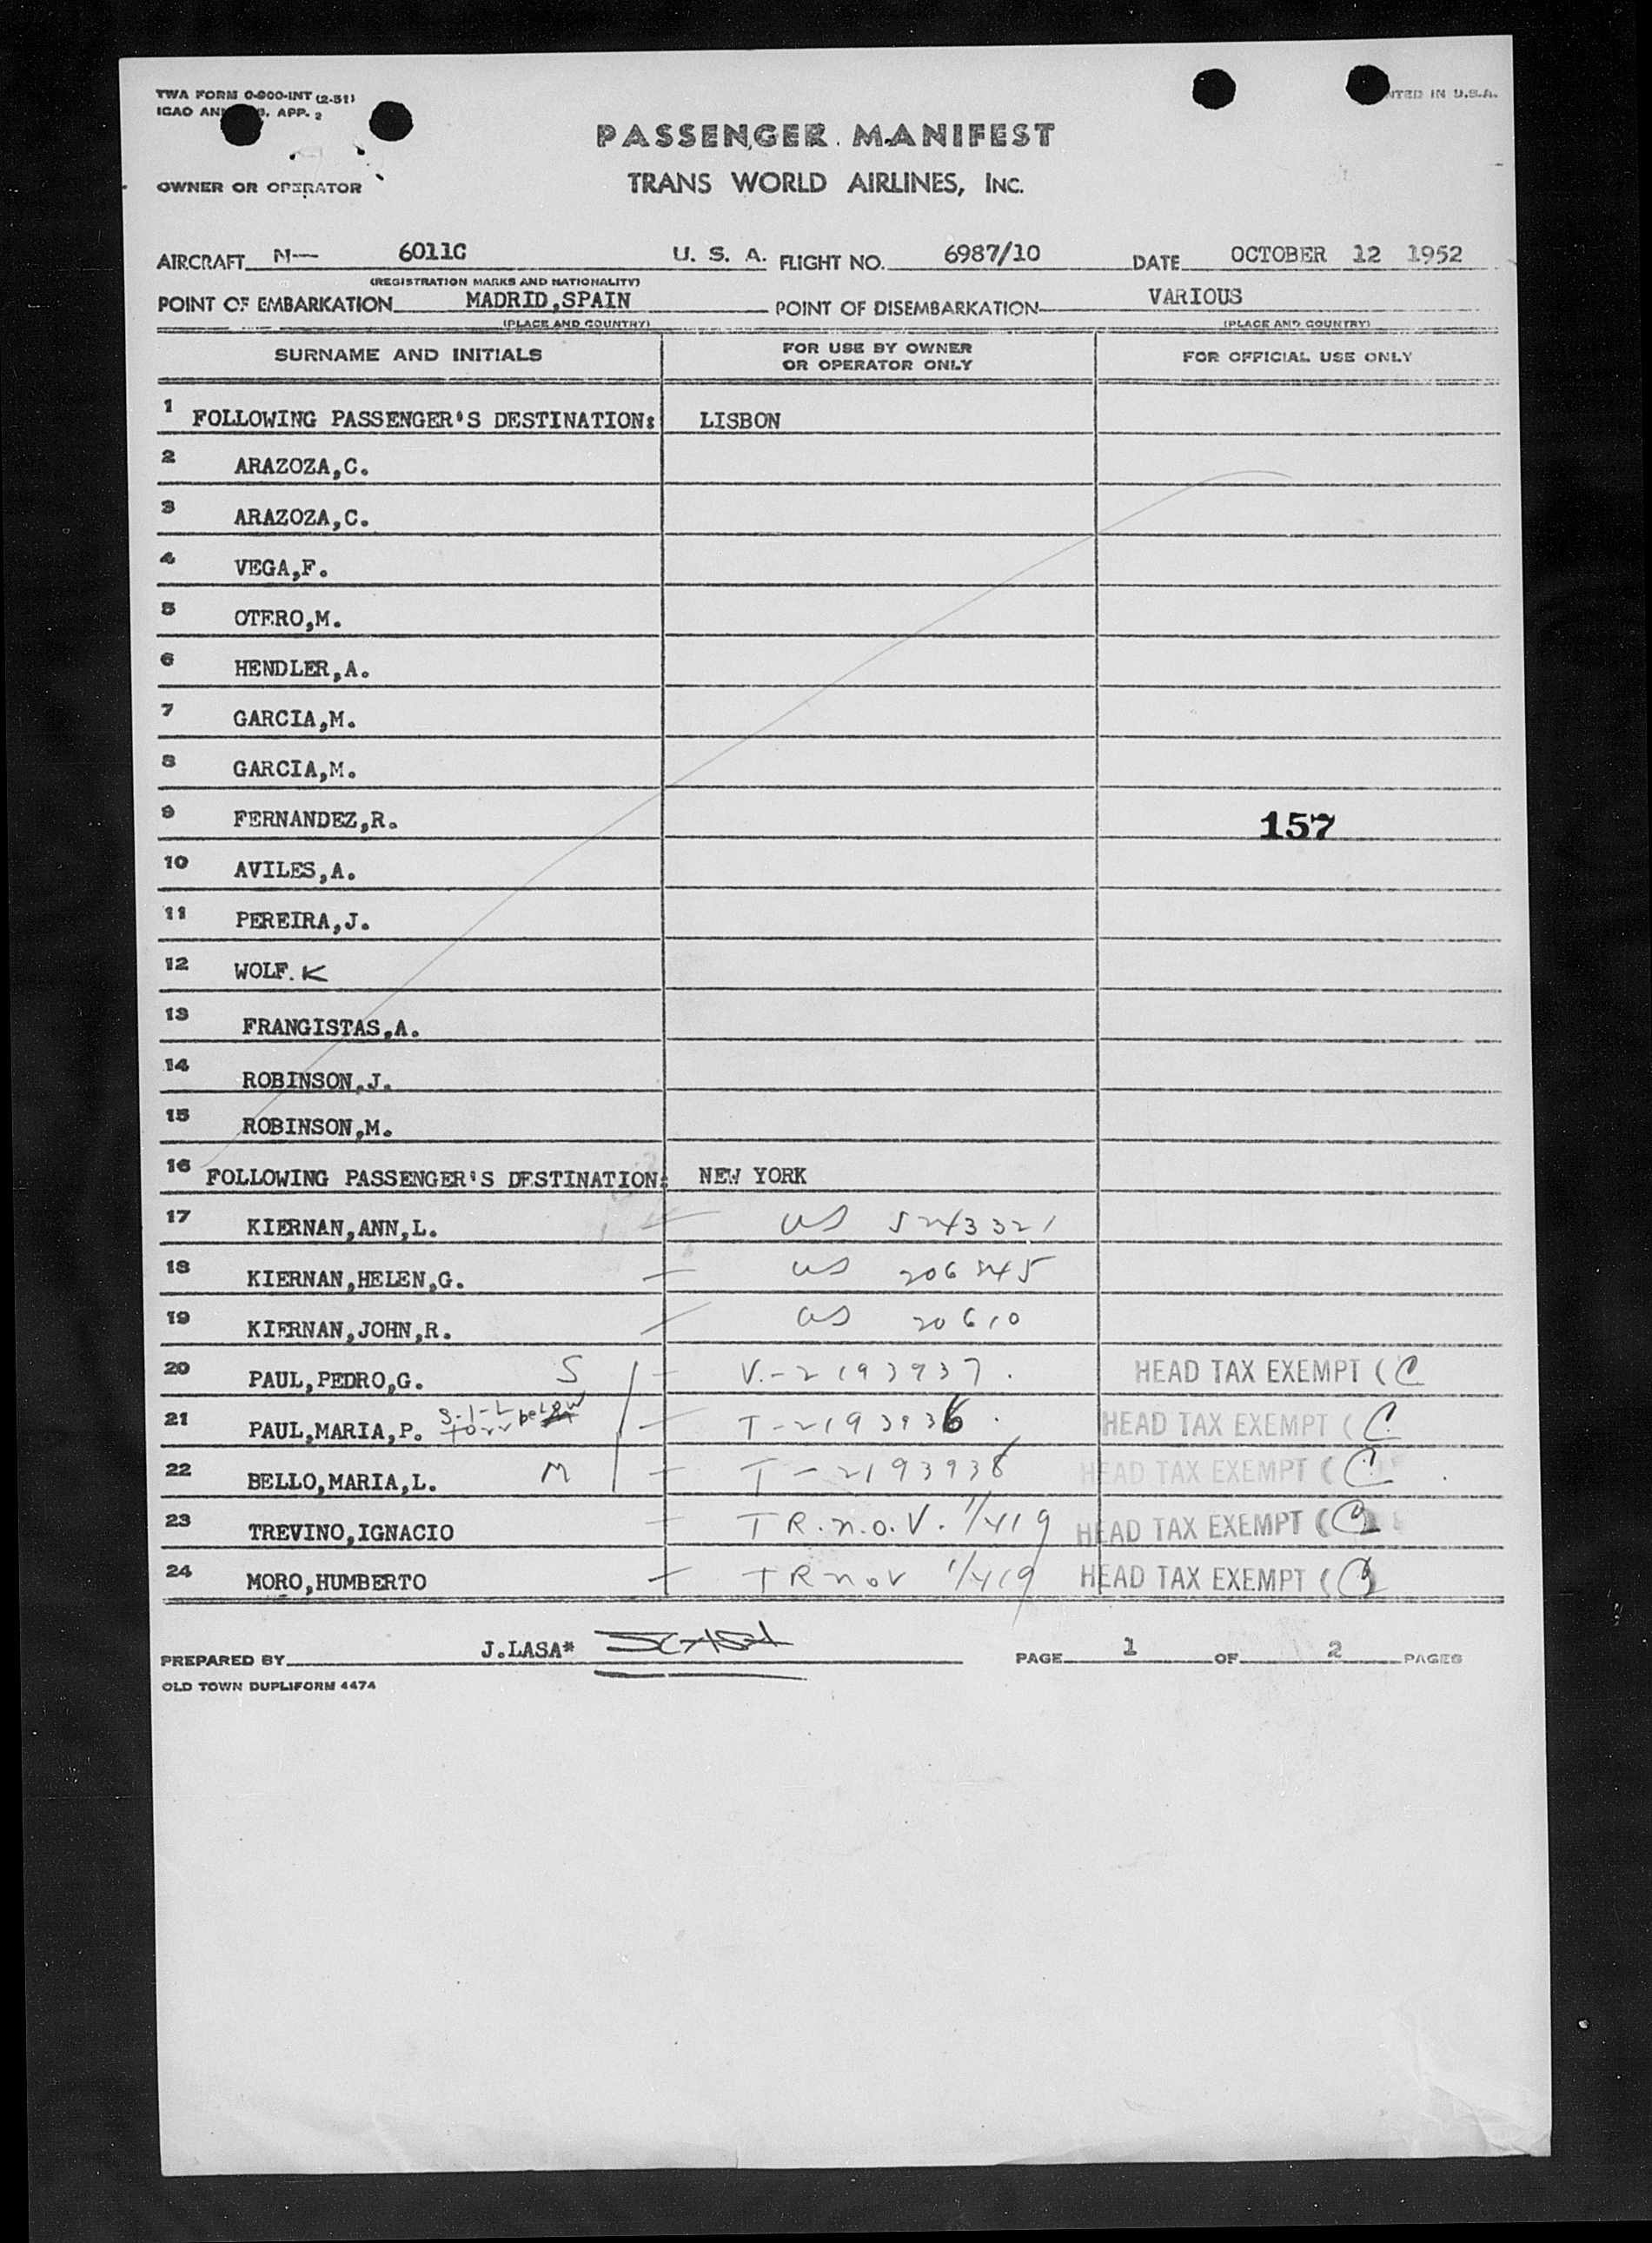 TWA FORM 0-900-INT (2-51)
ICAO 9, APP. 2
IN U.S.A.
PASSENGER MANIFEST
OWNER OR OPERATOR TRANS WORLD AIRLINES, INC.
AIRCRAFT N— 6011C U. S. A. FLIGHT NO. 6987/10 DATE OCTOBER 12 1952
(REGISTRATION MARKS AND NATIONALITY)
POINT OF EMBARKATION MADRID,SPAIN POINT OF DISEMBARKATION VARIOUS
(PLACE AND COUNTRY) (PLACE AND COUNTRY)
SURNAME AND INITIALS FOR USE BY OWNER OR OPERATOR ONLY FOR OFFICIAL USE ONLY
1 FOLLOWING PASSENGER'S DESTINATION: LISBON
2 ARAZOZA,C.
3 ARAZOZA,C.
4 VEGA,F.
5 OTERO,M.
6 HENDLER,A.
7 GARCIA,M.
8 GARCIA,M.
9 FERNANDEZ,R. 157
10 AVILES,A.
11 PEREIRA,J.
12 WOLF. K
13 FRANGISTAS,A.
14 ROBINSON,J.
15 ROBINSON,M.
16 FOLLOWING PASSENGER'S DESTINATION: NEW YORK
17 KIERNAN,ANN,L. US 5243321
18 KIERNAN,HELEN,G. US 206245
19 KIERNAN,JOHN,R. US 20610
20 PAUL,PEDRO,G. S V.-2193937. HEAD TAX EXEMPT (C
21 PAUL,MARIA,P. below T-2193936. HEAD TAX EXEMPT (C
22 BELLO,MARIA,L. M T-2193938 HEAD TAX EXEMPT (C
23 TREVINO,IGNACIO T R. n.o.V. 1/419 HEAD TAX EXEMPT (C
24 MORO,HUMBERTO T R nov 1/419 HEAD TAX EXEMPT (C
PREPARED BY J.LASA* PAGE 1 OF 2 PAGES
OLD TOWN DUPLIFORM 4474